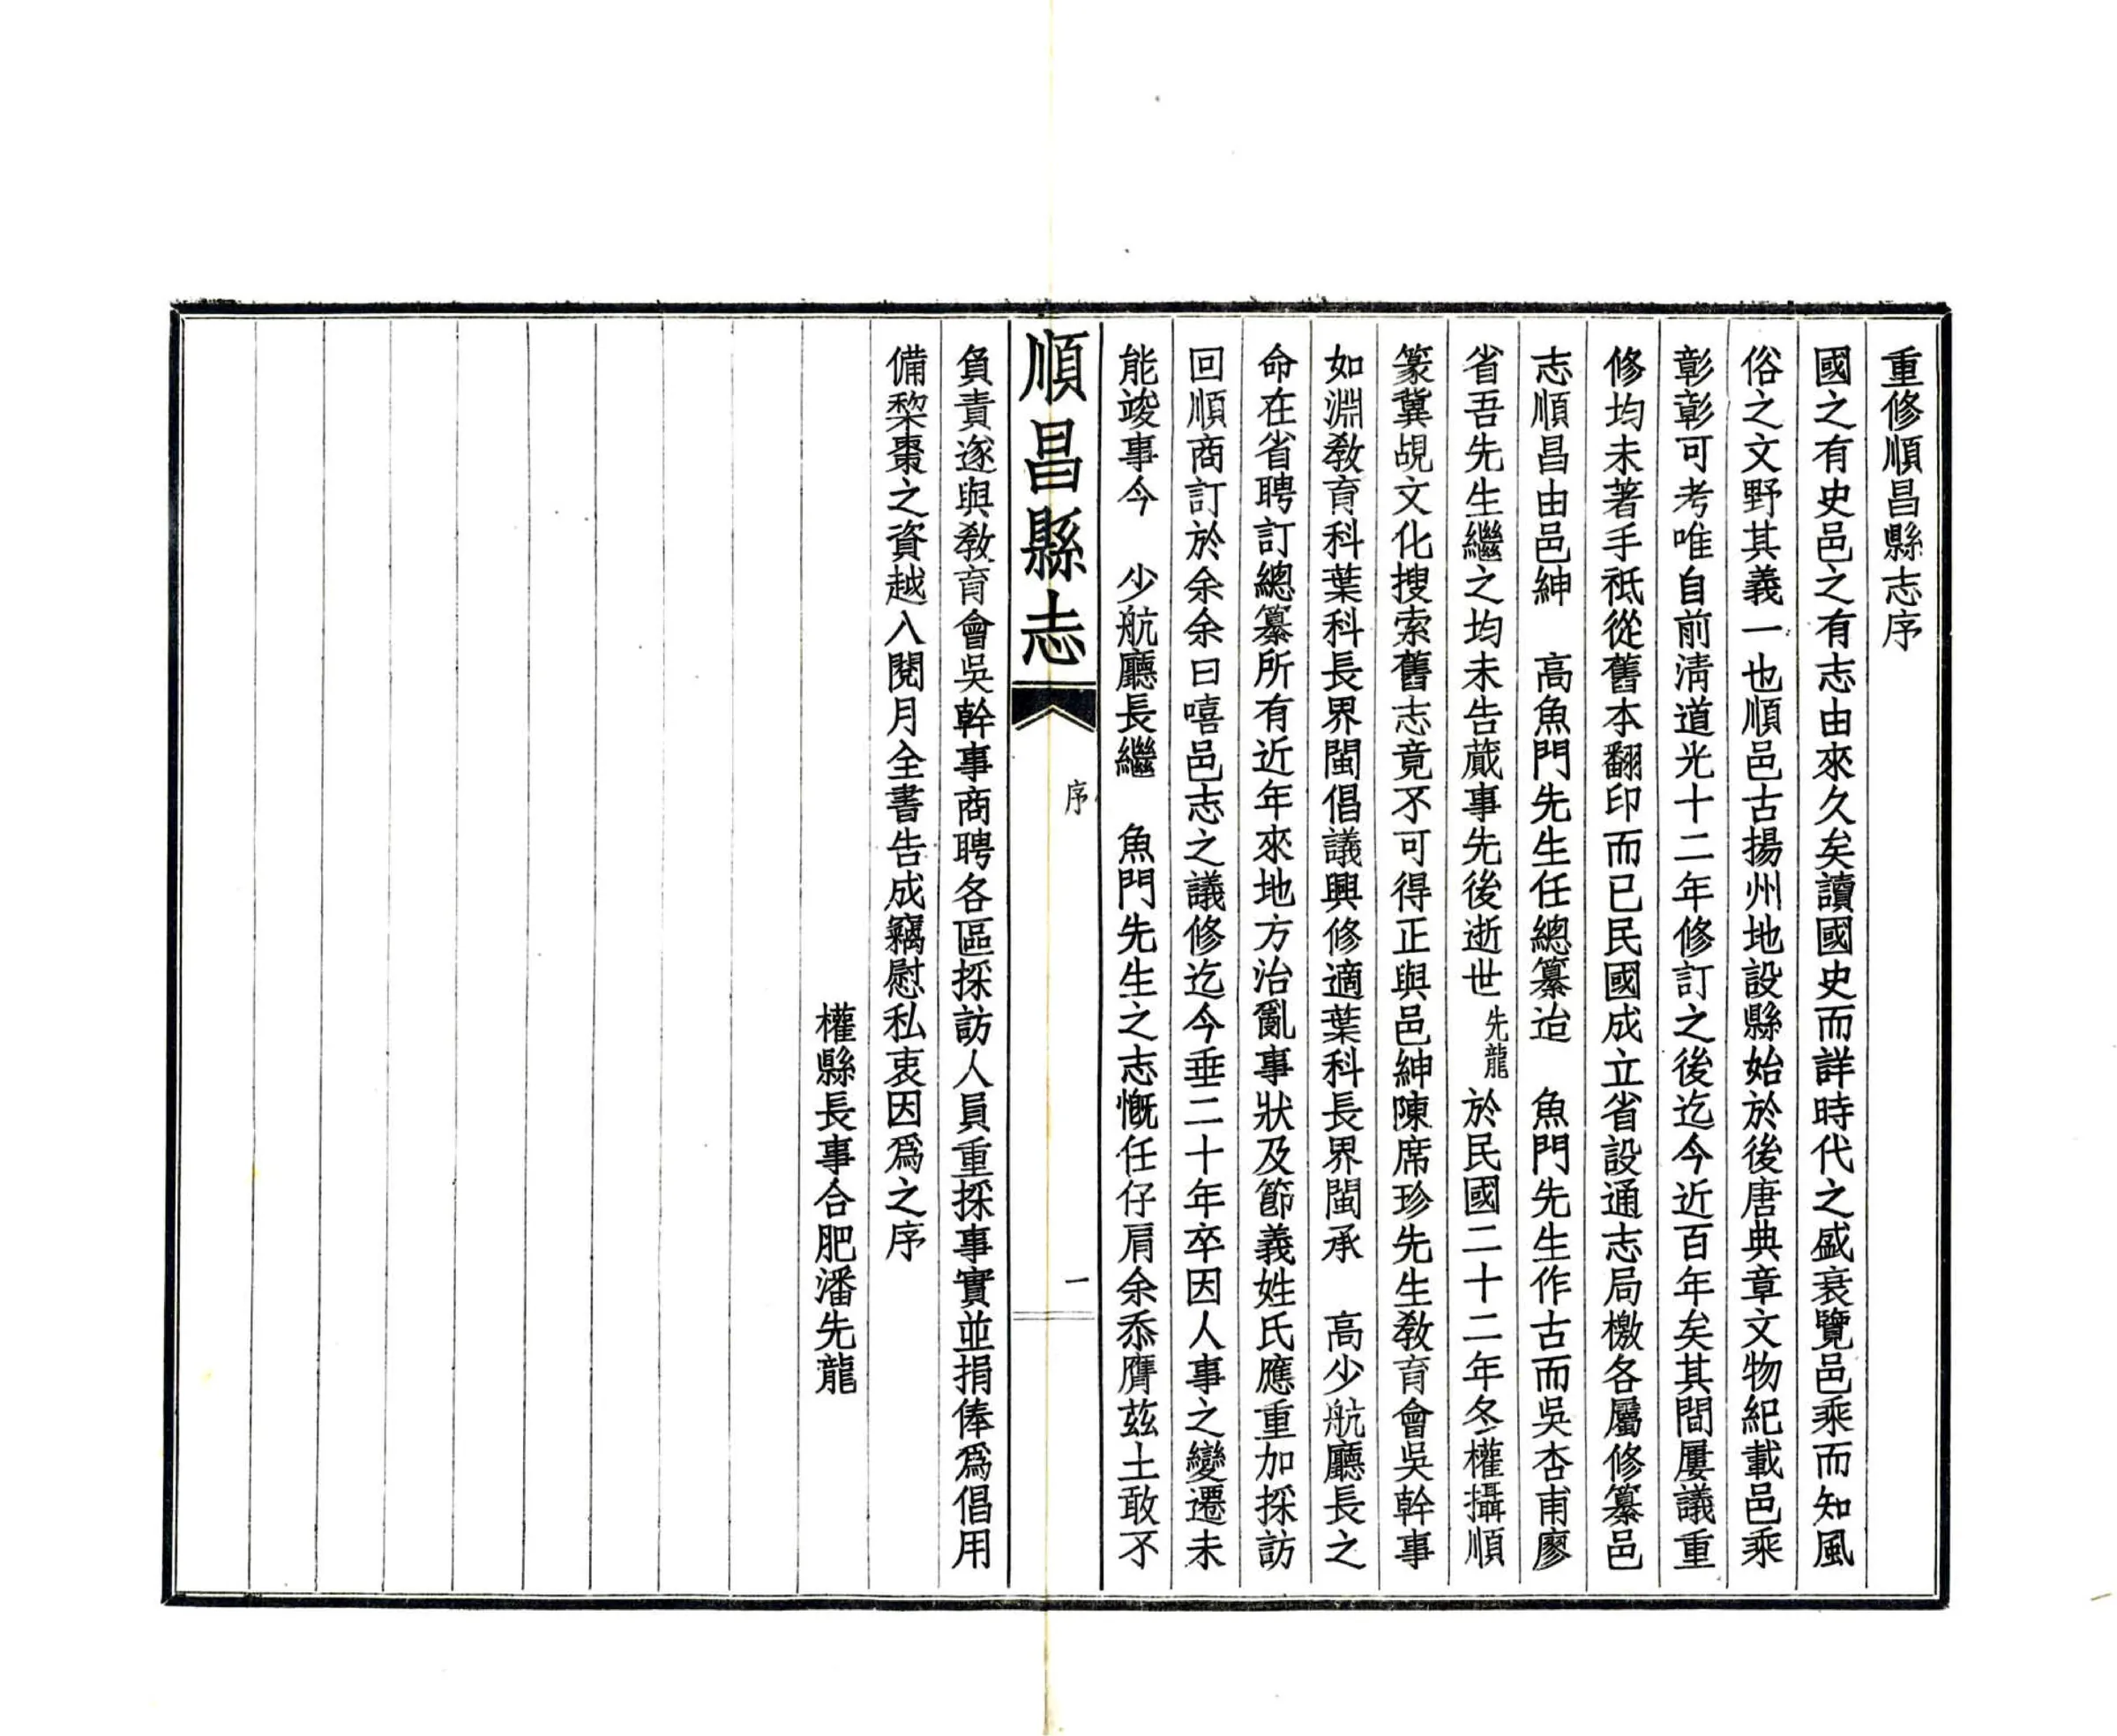 重修順昌縣志序
國之有史邑之有志由來久矣讀國史而詳時代之盛衰覽邑乘而知風
俗之文野其義一也順邑古揚州地設縣始於後唐典章文物紀載邑乘
彰彰可考唯自前清道光十二年修訂之後迄今近百年矣其間屢議重
修均未著手祗從舊本翻印而已民國成立省設通志局檄各屬修纂邑
志順昌由邑紳　高魚門先生任總纂迨　魚門先生作古而吳杏甫廖
省吾先生繼之均未告蕆事先後逝世先龍於民國二十二年冬權攝順
篆冀覘文化搜索舊志竟不可得正與邑紳陳席珍先生教育會吳幹事
如淵教育科葉科長界閩倡議興修適葉科長界閩承　高少航廳長之
命在省聘訂總纂所有近年來地方治亂事狀及節義姓氏應重加採訪
回順商訂於余余曰嘻邑志之議修迄今垂二十年卒因人事之變遷未
能竣事今　少航廳長繼　魚門先生之志慨任仔肩余忝膺茲土敢不
順昌縣志
序
一
負責遂與教育會吳幹事商聘各區採訪人員重採事實並捐俸爲倡用
備棃棗之資越八閱月全書告成竊慰私衷因爲之序
權縣長事合肥潘先龍